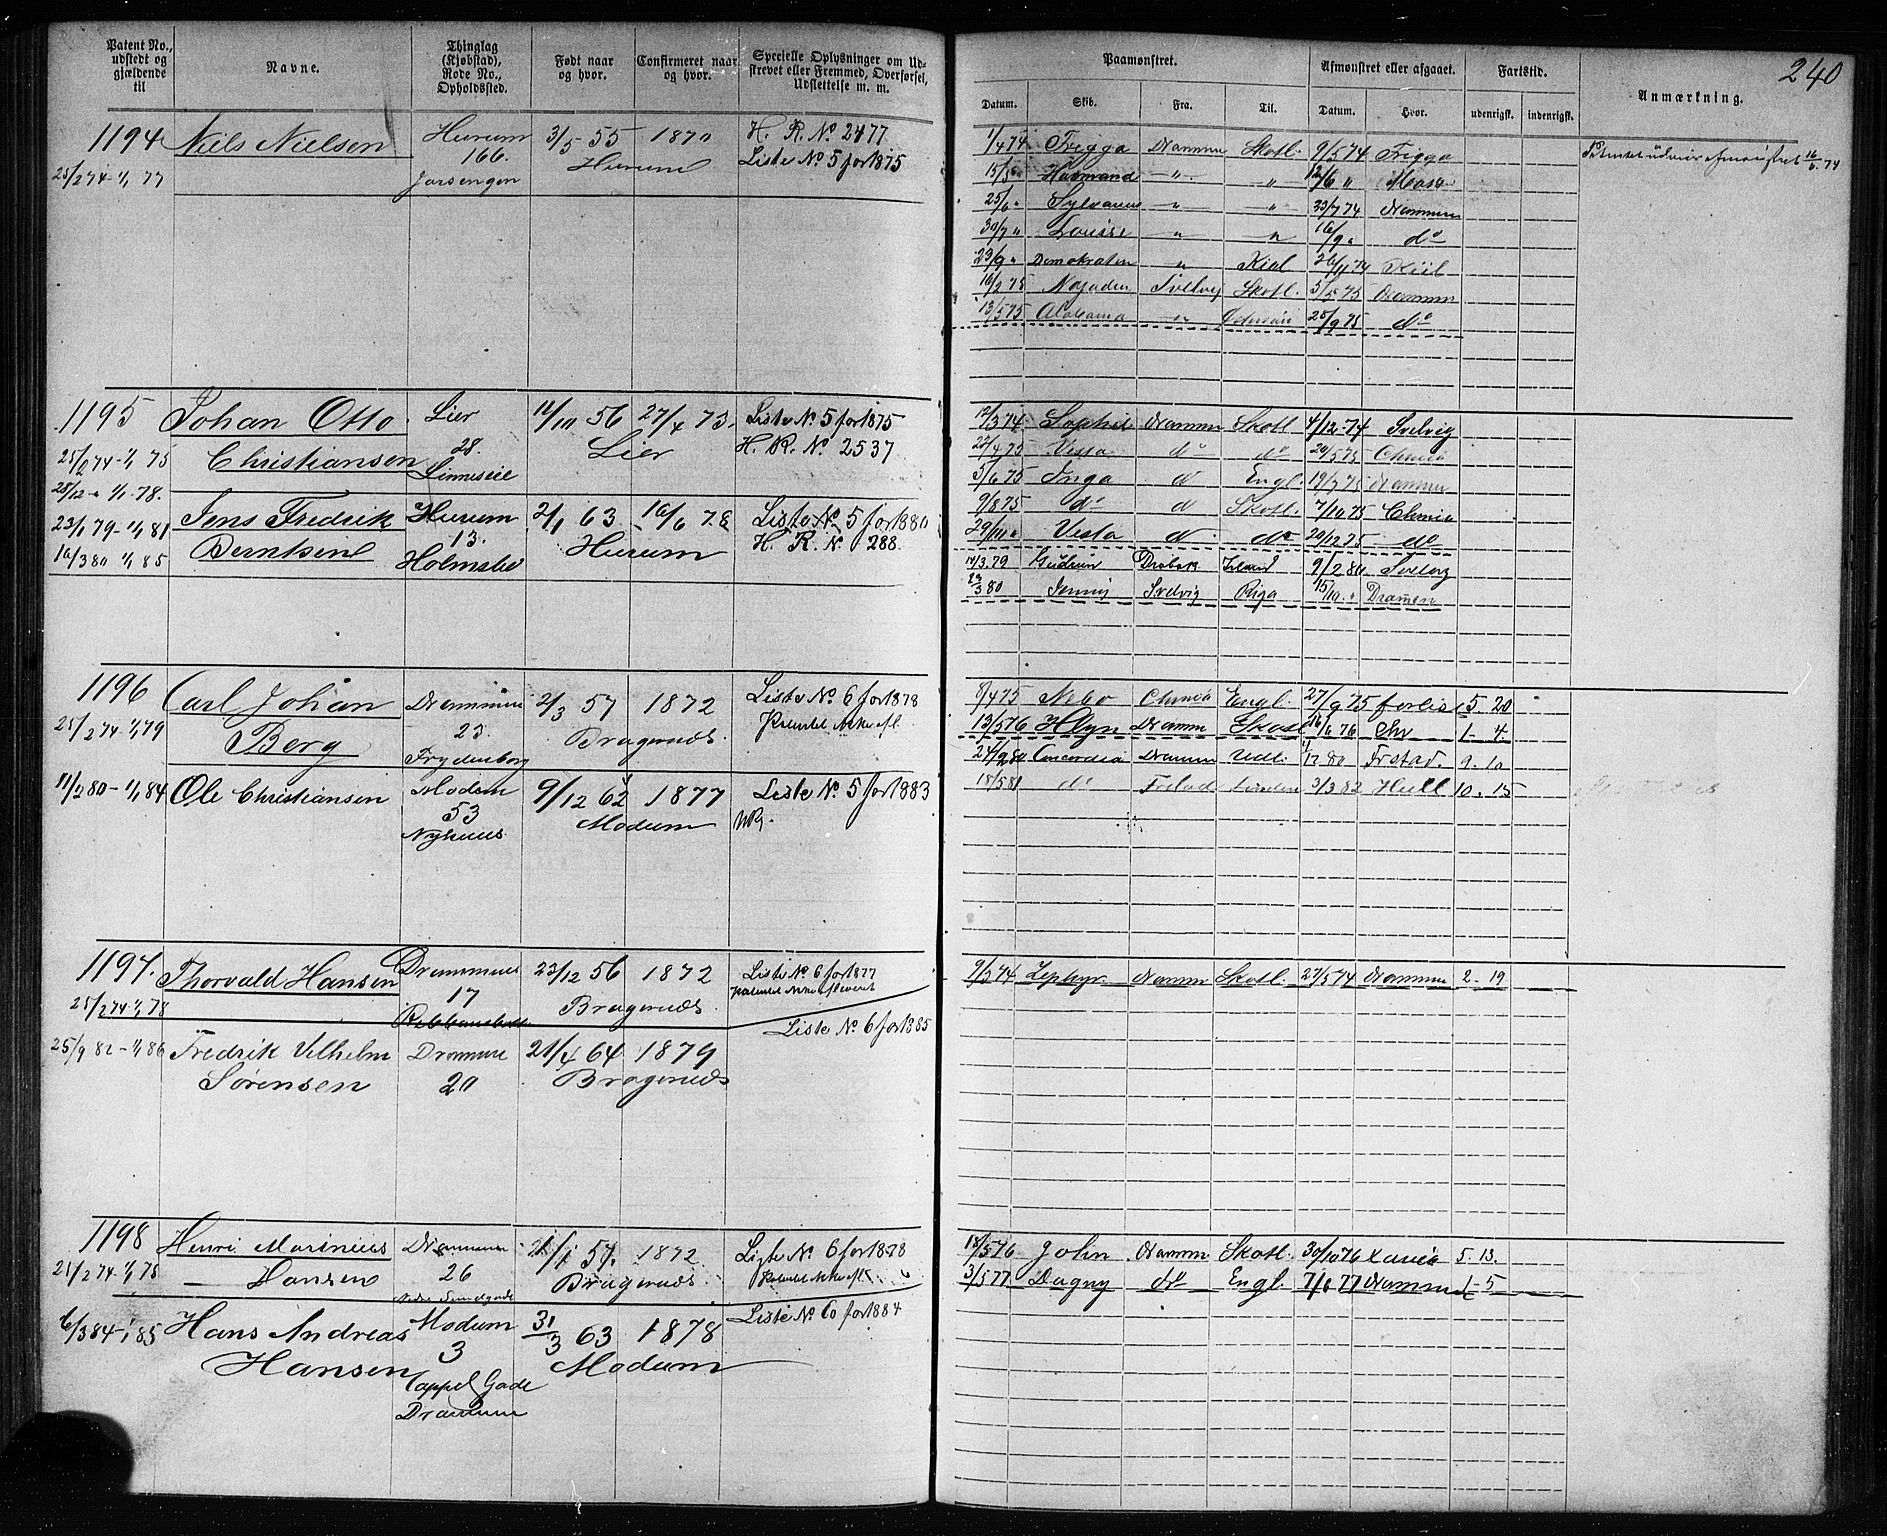 240
Patent No., udstedt og gjældende til
Navne.
Thinglag (Kjøbstad), Rode No., Opholdssted.
Født naar og hvor.
Confirmeret naar og hvor.
Specielle Oplysninger om Udskrevet eller Fremmed, Overførsel, Udslettelse m. m.
Paamønstret.
Afmønstret eller afgaaet.
Fartstid.
Anmærkning.
Datum. Skib. Fra. Til. Datum. Hvor. udenrigsk. indenrigsk.
1194 Niels Nielsen Hurum 3/5 55 1870 H. R. No 2477
25/2 74 - 1/1 77 166. Hurum Liste No 5 for 1875
1/4 74 Frigga Drammen Skotl. 9/5 74 Frigga
15/5 " Husmand " " 12/6 " Moss
25/6 " Sylvanus " " 23/7 74 Drammen
30/7 " Louise " " 16/9 " do
23/9 " Demokraten " Kiel 26/11 74 Kiel
16/2 75 Najaden Svelvig Skotl. 5/5 75 Drammen
13/5 75 Alabama " 25/9 75 do
1195 Johan Otto Lier 11/10 56 27/4 73. Liste No 5 for 1875
25/2 74 - 1/1 75 Christiansen 28. Lier H. R. No 2537
28/12 " 1/1 78. Linneseie
12/3 74 Sophie Drammen Skotl. 4/12 74 Svelvig
27/4 75 Vesta do do 20/5 75 Chrnia
5/6 75 Inga d Engl. 19/7 75 Drammen
9/8 75 do d Skotl. 7/10 75 Chrnia
29/10 " Vesta d do 20/12 75 do
23/1 79 - 1/1 81 Jens Fredrik Hurum 2/1 63 16/6 78 Liste No 5 for 1880
16/3 80 1/1 85 Berntsen 13. Hurum H. R. N. 288.
Holmsbo
14/3. 79 Gudrun Drøbak Irland 9/2 80 Svelvig
23/3 80 Jenny Svelvig Riga 15/10. " Dramen
1196 Carl Johan Drammen 2/3 57 1872 Liste No 6 for 1878
25/2 74 - 1/1 79 Berg 23. Bragernæs. Patentet ikke afl.
Frydenborg
8/4 75 Nebo Chrnia Engl. 27/9 75 forlis 5 20
13/5 76 Hlyn Drammen Skotl. 16/6 76 Chr 1 - 4.
11/2 80 - 1/1 84 Ole Christiansen Modum 9/12 62 1877 Liste No 5 for 1883
53 Modum
Nyhuus
24/9 80 Concordia Drammen Udl. 4/12 80 Frstad. 9. 10
18/5 81 do Frstad London 3/3 82 Hull 10. 15
1197. Thorvald Hansen Drammens 23/12 56 1872 Liste No 6 for 1877
25/2 74 1/1 78 17 Bragernæs. Patentet ikke afleveret
9/3 74 Zephyr. Dramm Skotl. 27/5 74 Drammen 2 - 19
25/9 82 - 1/1 86 Fredrik Vilhelm Dramme 21/4 64 1879 Liste No 6 for 1885
Sørensen 20 Bragernæs
1198 Henri Marinius Drammen 1/1 57. 1872. Liste No 6 for 1878
25/2 74 - 1/1 78 Hansen 26 Bragernæs. Patentet ikke afl.
18/5 76 John Dramm Skotl. 30/10 76 5. 13.
3/5 77 Dagny do Engl. 7/6 77 Drammen 1 - 5
6/3 84 - 1/1 85 Hans Andreas Modum 31/3 63 1878 Liste No 6 for 1884
Hansen 3 Modum
Cappel Gade
Drammen